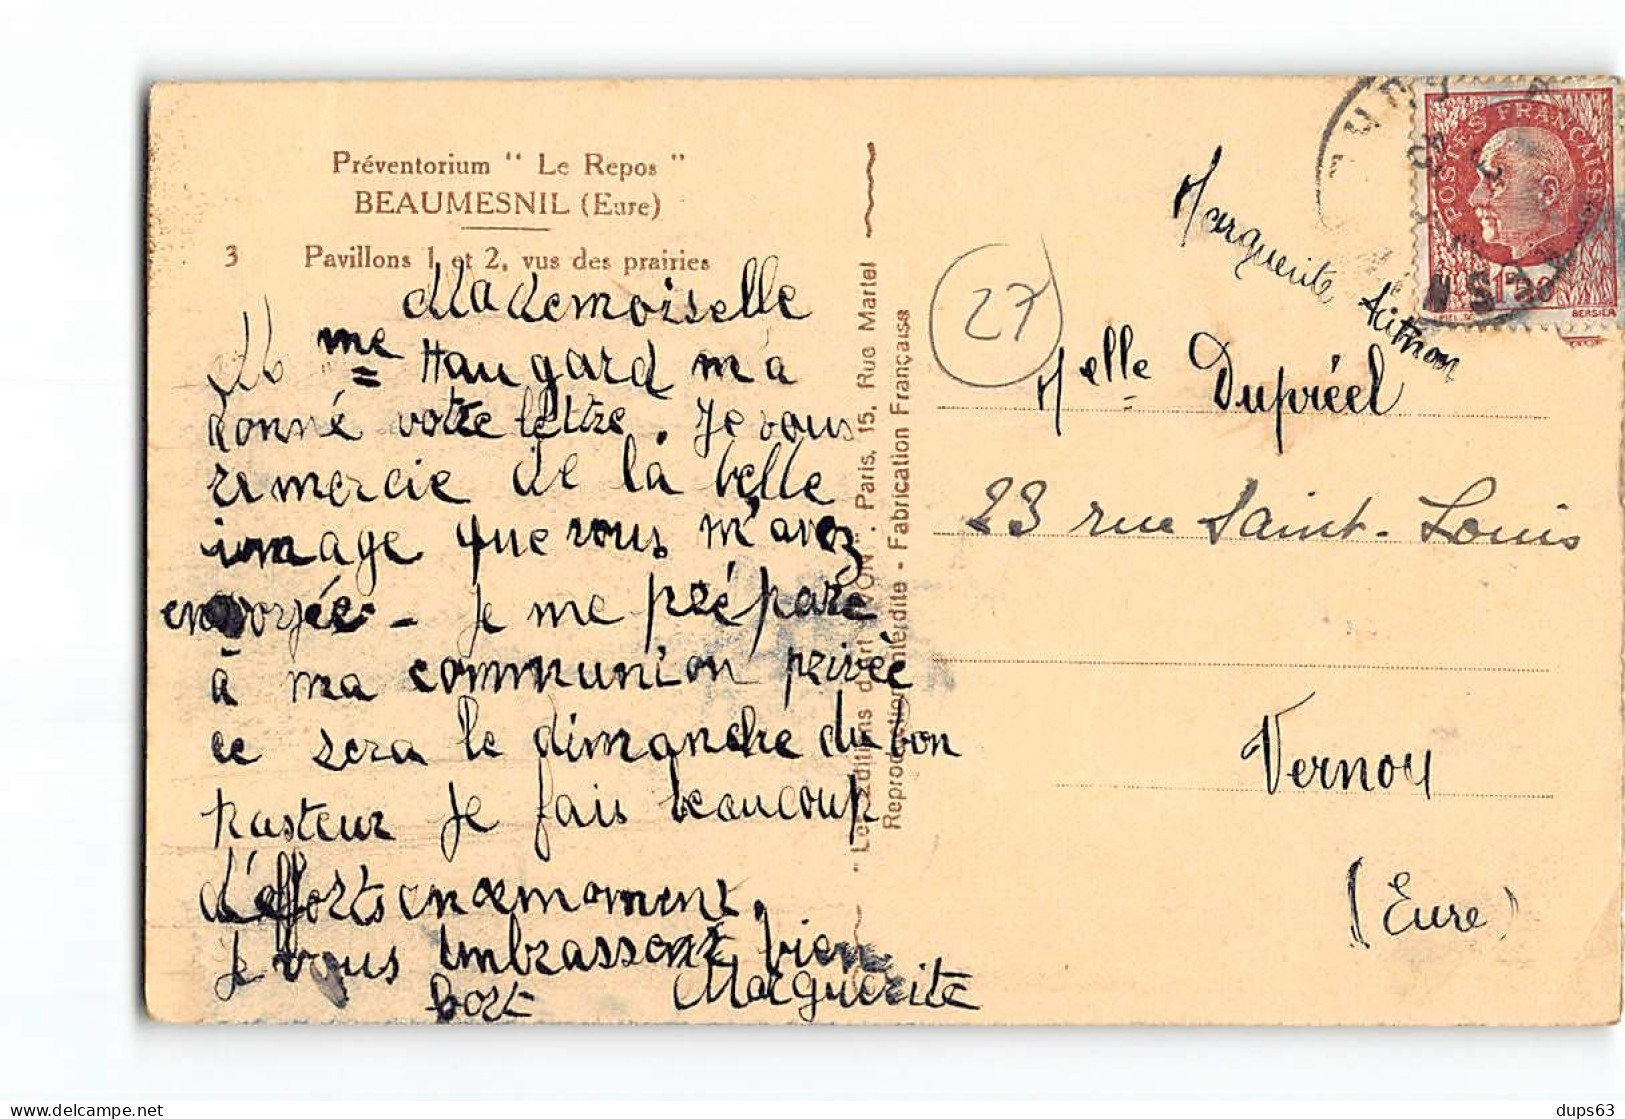 Préventorium " Le Repos "
BEAUMESNIL (Eure)
3 Pavillons 1 et 2, vus des prairies
Mademoiselle
Mme Haugard m'a
donné votre lettre. Je vous
remercie de la belle
image que vous m'avez
envoyée - Je me prépare
à ma communion privée
ce sera le dimanche du bon
pasteur Je fais beaucoup
d'efforts en ce moment.
Je vous embrassent bien
fort Marguerite
Les Editions d'art "YVON" . Paris, 15, Rue Martel
Reproduction interdite - Fabrication Française
27
Marguerite
POSTES FRANÇAISES
1F20
BERSIER
Melle Dupréel
23 rue Saint-Louis
Vernon
(Eure)
dups63